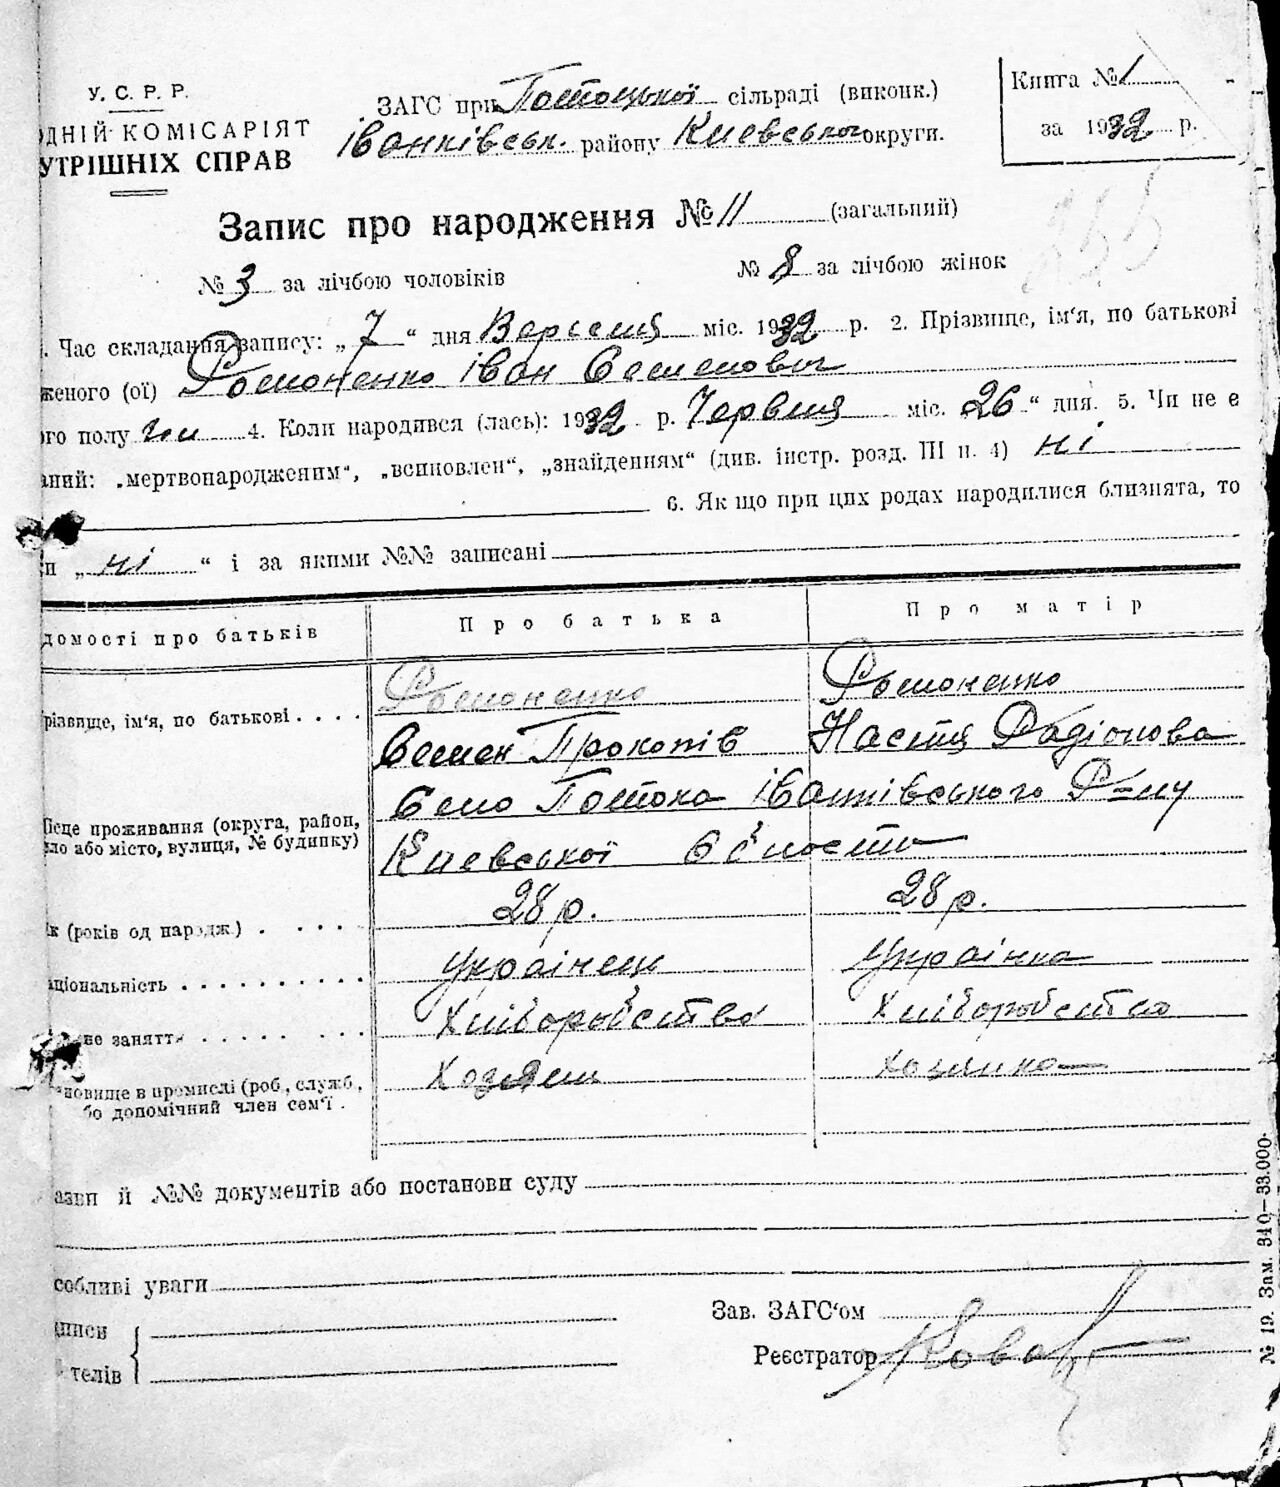 У. С. Р. Р.
ОДНІЙ КОМІСАРІЯТ
УТРІШНІХ СПРАВ
ЗАГС при Потоцької сільраді (виконк.)
Іванківськ. району Киевського округи.
Книга № 1
за 1932 р.
Запис про народження № 11 (загальний)
№ 3 за лічбою чоловіків № 8 за лічбою жінок
. Час складання запису: „ 7 “ дня Вересня міс. 1932 р. 2. Прізвище, ім‘я, по батькові
женого (ої) Романенко Іван Семенович
ого полу чол 4. Коли народився (лась): 1932 р. Червня міс. 26 “ дня. 5. Чи не е
аний: „мертвонародженим“, „всиновлен“, „знайденням“ (див. інстр. розд. III п. 4) ні
6. Як що при цих родах народилися близнята, то
и „ ні “ і за якими №№ записані
домості про батьків Про батька Про матір
різвище, ім‘я, по батькові . . . . Романенко Романенко
Семен Прокопів Настя Радіонова
Село Потока Іванківського Р=ну
ісце проживання (округа, район,
ело або місто, вулиця, № будинку)
Киевської области
к (років од народж.) . . . . . 28 р. 28 р.
аціональність . . . . . . . . . . Украінец Украінка
не заняття . . . . . . . . Хліборобство Хліборобство
новище в промислі (роб., служб., Хозяен Хозяика
бо допомічний член сем‘ї .
азви й №№ документів або постанови суду
собливі уваги
дписи
телів
Зав. ЗАГС‘ом
Реєстратор
№ 19. Зам. 340—33.000